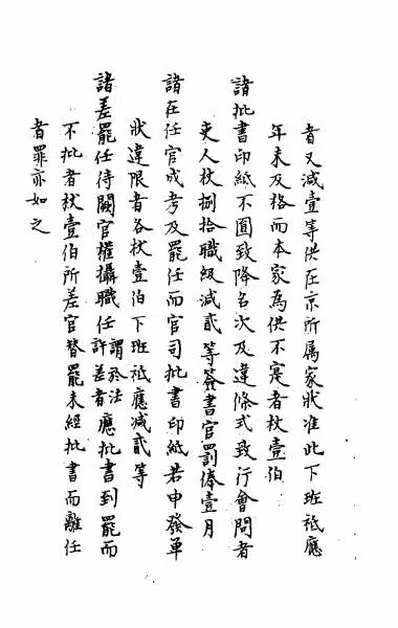 者又減壹等供在京所屬家狀准此下班祗應
年未及格而本家爲供不寔者杖壹伯
諸批書印紙不圓致降名次及違條式致行會問者
吏人杖捌拾職級減貳等簽書官罰俸壹月
諸在任官成考及罷任而官司批書印紙若申發單
狀違限者各杖壹伯下班祗應減貳等
諸差罷任待闕官權攝職任謂於法許差者應批書到罷而
不批者杖壹伯所差官替罷未經批書而離任
者罪亦如之